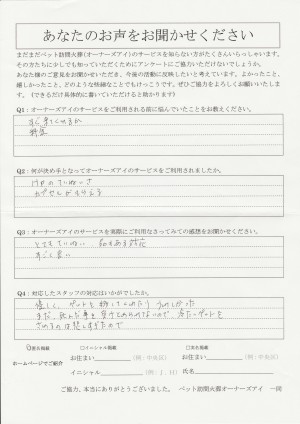 あなたのお声をお聞かせください
まだまだペット訪問火葬(オーナーズアイ)のサービスを知らない方がたくさんいらっしゃいます。
その方たちに少しでも知っていただくためにアンケートにご協力いただけないでしょうか。
あなた様のご意見をお聞かせいただき、今後の活動に反映したいと考えています。よかったこと、
嬉しかったこと、どのような些細なことでもけっこうです。ぜひご協力をよろしくお願いいたしま
す。(できるだけ具体的に書いていただけると助かります)
Q1：オーナーズアイのサービスをご利用される前に悩んでいたことをお教えください。
すぐ来てくれるか
料金
Q2：何が決め手となってオーナーズアイのサービスをご利用されましたか。
ていねいさ
カプセルがもらえる
Q3：オーナーズアイのサービスを実際にご利用なさってみての感想をお聞かせください。
とてもていねい 品もある対応
すごく良い
Q4：対応したスタッフの対応はいかがでしたか。
優しく、ペットを
まだ、死んだ事を受けとめられないので、冷たいペットを
さわるのは悲しすぎたので
匿名掲載
イニシャル掲載
実名掲載
ホームページでご紹介
お住まい (例：中央区)
お住まい (例：中央区)
イニシャル (例：J．H)
氏名
ご協力、本当にありがとうございました。 ペット訪問火葬オーナーズアイ 一同